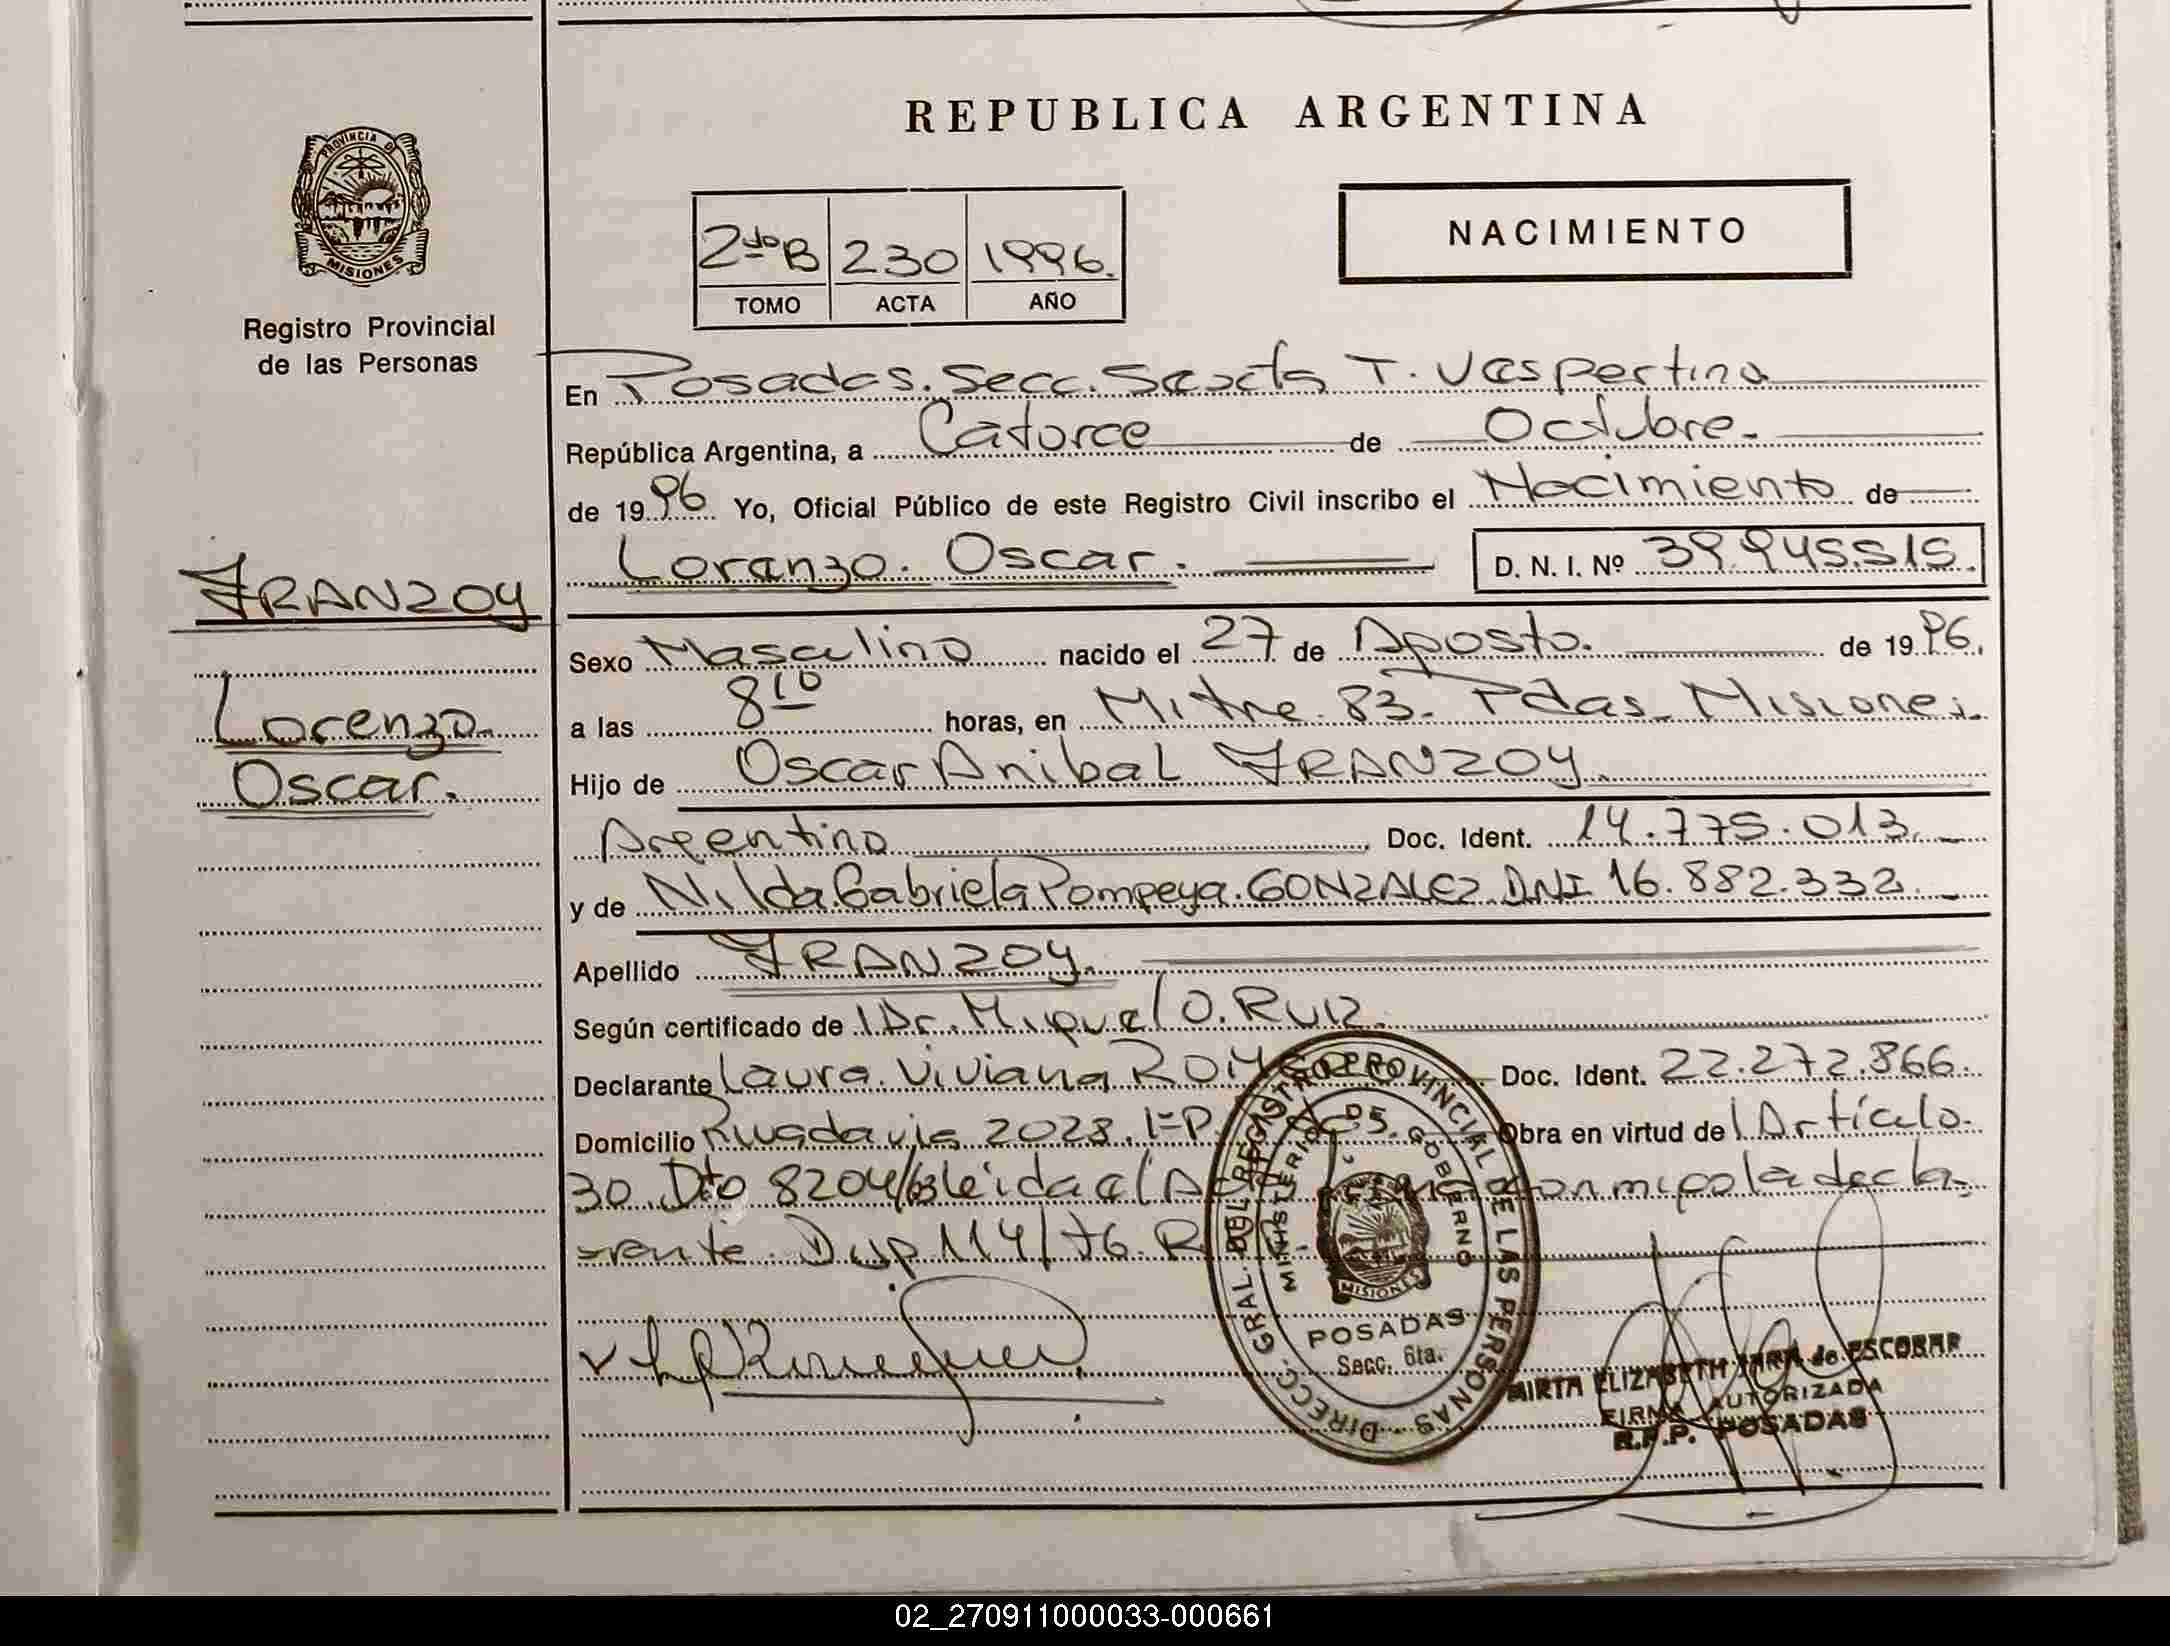 REPUBLICA ARGENTINA
PROVINCIA DE
MISIONES
Registro Provincial
de las Personas
NACIMIENTO
2do B 230 1996.
TOMO ACTA AÑO
En Posadas. Secc. Sexta T. Vespertina
República Argentina, a Catorce de Octubre.
de 1996 Yo, Oficial Público de este Registro Civil inscribo el Nacimiento de
Lorenzo. Oscar. D. N. I. Nº 39.945.515.
FRANZOY
Lorenzo.
Oscar.
Sexo Masculino nacido el 27 de Agosto. de 1996.
a las 8 10 horas, en Mitre 83. Pdas. Misiones.
Hijo de Oscar Anibal FRANZOY.
Argentino Doc. Ident. 14.775.013.
y de Nilda Gabriela Pompeya. GONZALEZ DNI 16.882.332.
Apellido FRANZOY.
Según certificado del Dr. Miguel O. RUIZ.
Declarante Laura Viviana Doc. Ident. 22.272.866.
Domicilio Rivadavia 2028. 1-P. Obra en virtud del Artículo.
30 Dto 8204/63 leida el conmigo la decla-
rante. Disp 114/76. R
DIRECC. GRAL. DEL REGISTRO PROVINCIAL DE LAS PERSONAS
MINISTERIO DE GOBIERNO
MISIONES
POSADAS
Secc. 6ta.
MIRTA ELIZABETH JARA de ESCOBAR
FIRMA AUTORIZADA
R.P.P. POSADAS
02_270911000033-000661